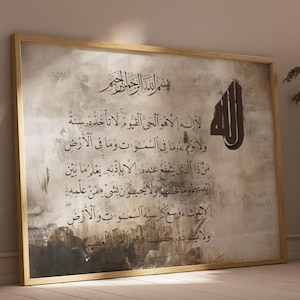 بسم الله الرحمن الرحيم
الله
لا إله إلا هو الحي القيوم لا تأخذه سنة
ولا نوم له ما في السموات وما في الأرض
من ذا الذي يشفع عنده إلا بإذنه يعلم ما بين
أيديهم وما خلفهم ولا يحيطون بشيء من علمه إلا
بما شاء وسع كرسيه السموات والأرض
ولا يئوده حفظهما وهو العلي العظيم